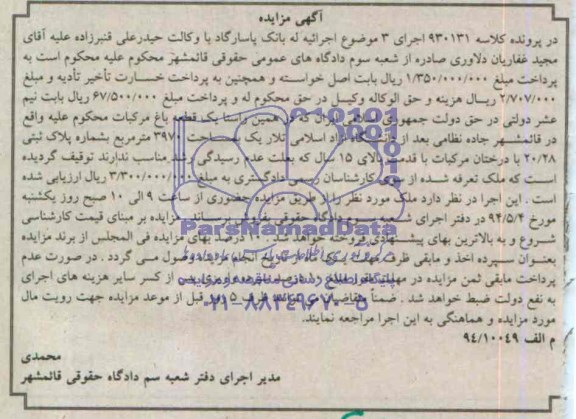 آگهی مزایده
در پرونده کلاسه ۹۳۰۱۳۱ اجرای ۳ موضوع اجرائیه له بانک پاسارگاد با وکالت حیدرعلی قنبرزاده علیه آقای
مجید غفاریان دلاوری صادره از شعبه سوم دادگاه های عمومی حقوقی قائمشهر محکوم علیه محکوم است به
پرداخت مبلغ ۱/۳۵۰/۰۰۰/۰۰۰ ریال بابت اصل خواسته و همچنین به پرداخت خسارت تأخیر تأدیه و مبلغ
۲/۷۰۷/۰۰۰ ریال هزینه و حق الوکاله وکیل در حق محکوم له و پرداخت مبلغ ۶۷/۵۰۰/۰۰۰ ریال بابت نیم
عشر دولتی در حق دولت جمهوری اسلامی که در همین راستا یک قطعه باغ مرکبات محکوم علیه واقع
در قائمشهر جاده نظامی بعد از دانشگاه آزاد اسلامی تلار یک به مساحت ۳۹۷۰ مترمربع بشماره پلاک ثبتی
۲۰/۲۸ با درختان مرکبات با قدمت بالای ۱۵ سال که بعلت عدم رسیدگی رشد مناسب ندارند توقیف گردیده
است که ملک تعرفه شده از سوی کارشناسان رسمی دادگستری به مبلغ ۳/۳۰۰/۰۰۰/۰۰۰ ریال ارزیابی شده
است . این اجرا در نظر دارد ملک مورد نظر را از طریق مزایده حضوری از ساعت ۹ الی ۱۰ صبح روز یکشنبه
مورخ ۹۴/۵/۴ در دفتر اجرای شعبه سوم دادگاه حقوقی بفروش برساند. مزایده بر مبنای قیمت کارشناسی
شروع و به بالاترین بهای پیشنهادی فروخته خواهد شد . ۱۰ درصد بهای مزایده فی المجلس از برنده مزایده
بعنوان سپرده اخذ و مابقی ظرف مهلت یک ماه از تاریخ انجام مزایده وصول می گردد . در صورت عدم
پرداخت مابقی ثمن مزایده در مهلت مقرر مبلغ ۱۰ درصد سپرده واریزی پس از کسر سایر هزینه های اجرای
به نفع دولت ضبط خواهد شد . ضمناً متقاضیان می توانند ظرف ۵ روز قبل از موعد مزایده جهت رویت مال
مورد مزایده و هماهنگی به این اجرا مراجعه نمایند.
م الف ۹۴/۱۰۰۴۹
محمدی
مدیر اجرای دفتر شعبه سم دادگاه حقوقی قائمشهر
ParsNamadData
۰۲۱-۸۸۳۴۹۶۷۰-۵